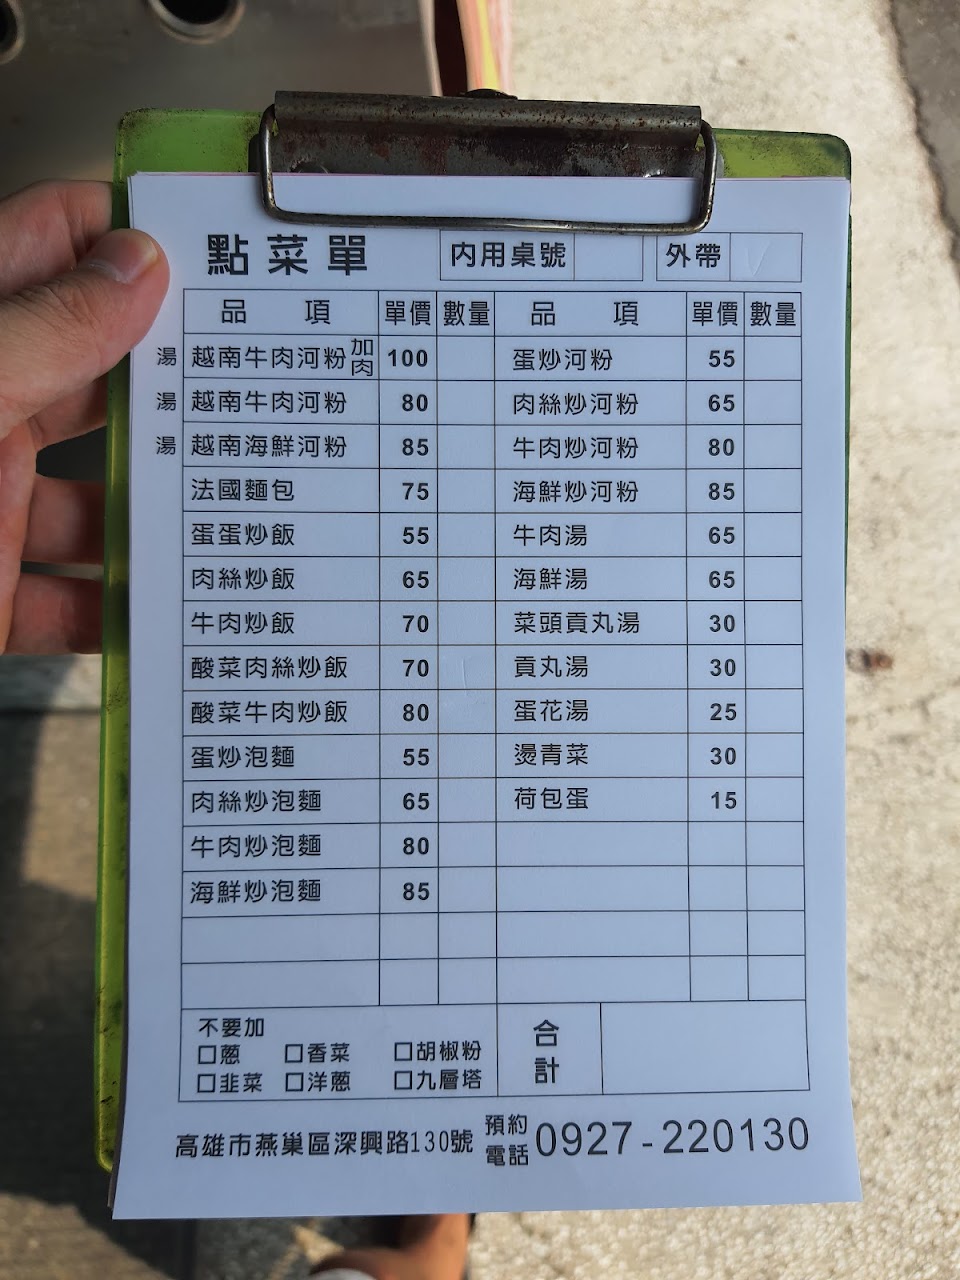 點菜單 內用桌號 外帶
品項 單價 數量 品項 單價 數量
湯 越南牛肉河粉加肉 100 蛋炒河粉 55
湯 越南牛肉河粉 80 肉絲炒河粉 65
湯 越南海鮮河粉 85 牛肉炒河粉 80
法國麵包 75 海鮮炒河粉 85
蛋蛋炒飯 55 牛肉湯 65
肉絲炒飯 65 海鮮湯 65
牛肉炒飯 70 菜頭貢丸湯 30
酸菜肉絲炒飯 70 貢丸湯 30
酸菜牛肉炒飯 80 蛋花湯 25
蛋炒泡麵 55 燙青菜 30
肉絲炒泡麵 65 荷包蛋 15
牛肉炒泡麵 80
海鮮炒泡麵 85
不要加 合計
□蔥 □香菜 □胡椒粉
□韭菜 □洋蔥 □九層塔
高雄市燕巢區深興路130號 預約電話 0927-220130